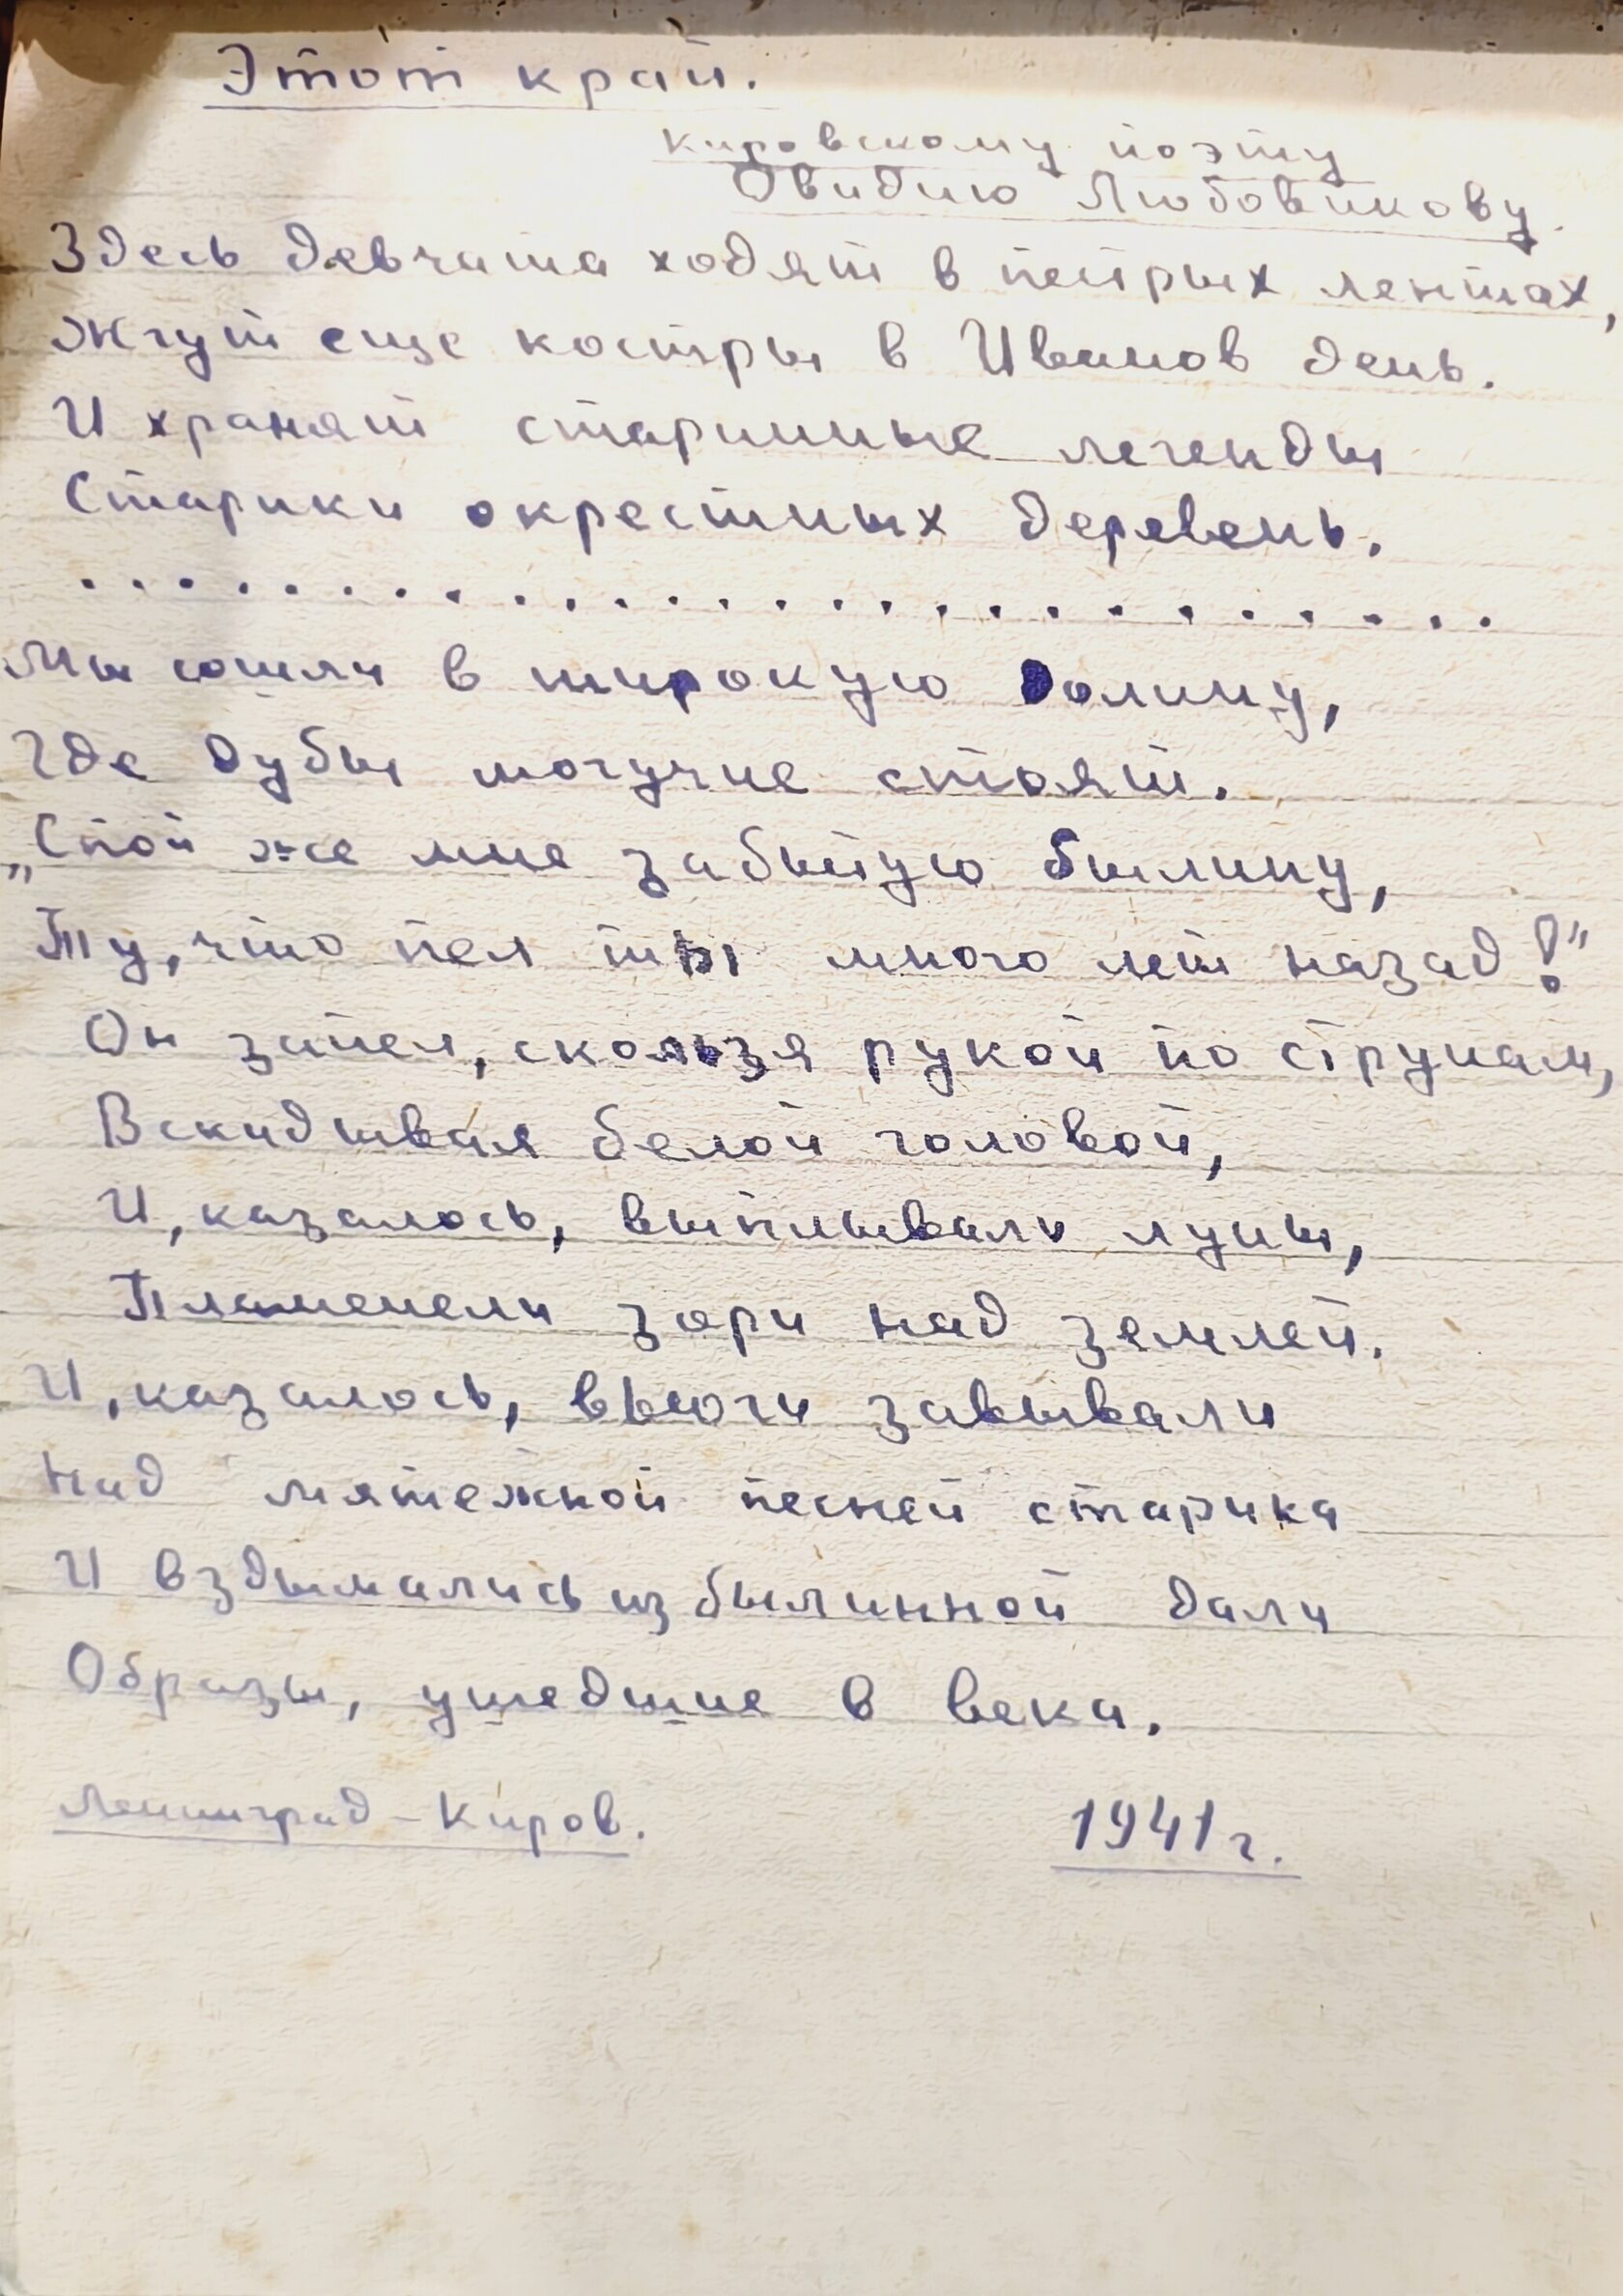 Этот край.
Кировскому поэту
Овидию Любовикову.
Здесь девчата ходят в пестрых лентах,
Жгут еще костры в Иванов день.
И хранят старинные легенды
Старики окрестных деревень.
. . . . . . . . . . . . . . . . . . . . . . . . . . .
Мы сошли в широкую долину,
Где дубы могучие стоят.
„Спой же мне забытую былину,
Ту, что пел ты много лет назад!"
Он запел, скользя рукой по струнам,
Вскидывая белой головой,
И, казалось, выплывали луны,
Пламенели зори над землей.
И, казалось, вьюги завывали
Над мятежной песней старика
И вздымались из былинной дали
Образы, ушедшие в века.
Ленинград - Киров. 1941 г.